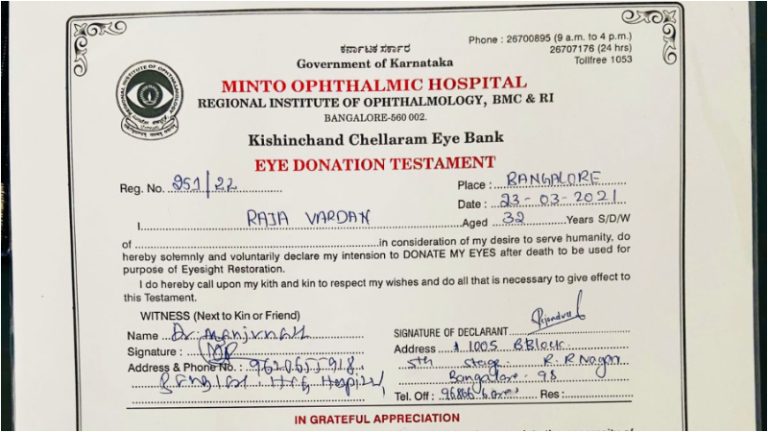 ಕರ್ನಾಟಕ ಸರ್ಕಾರ
Government of Karnataka
Phone : 26700895 (9 a.m. to 4 p.m.)
26707176 (24 hrs)
Tollfree 1053
MINTO OPHTHALMIC HOSPITAL
REGIONAL INSTITUTE OF OPHTHALMOLOGY, BMC & RI
BANGALORE-560 002.
Kishinchand Chellaram Eye Bank
EYE DONATION TESTAMENT
Reg. No. 251/22
Place : BANGALORE
Date : 23-03-2021
I RAJA VARDAN Aged 32 Years S/D/W
of in consideration of my desire to serve humanity, do
hereby solemnly and voluntarily declare my intension to DONATE MY EYES after death to be used for
purpose of Eyesight Restoration.
I do hereby call upon my kith and kin to respect my wishes and do all that is necessary to give effect to
this Testament.
WITNESS (Next to Kin or Friend)
Name Dr. Manjunath
Signature :
Address & Phone No. : 9620655918
Hospital
SIGNATURE OF DECLARANT
Address 1005 B Block
5th Stage R.R Nagar
Bangalore 98
Tel. Off : Res :
IN GRATEFUL APPRECIATION